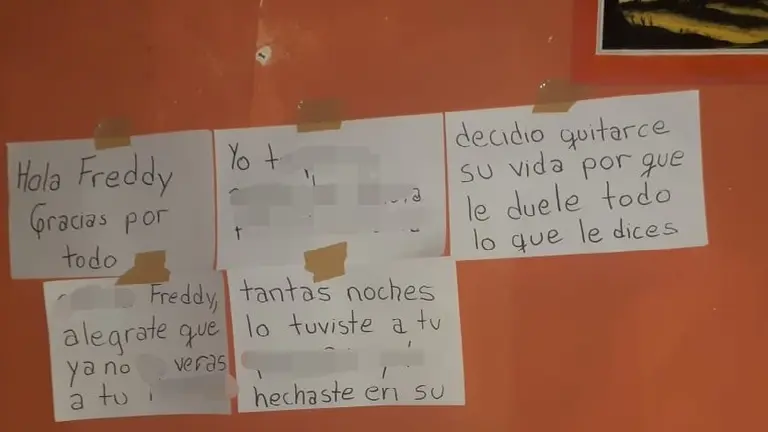 Hola Freddy
Gracias por
todo
Yo
decidio quitarce
su vida por que
le duele todo
lo que le dices
Freddy,
alegrate que
ya no veras
a tu
tantas noches
lo tuviste a tu
hechaste en su